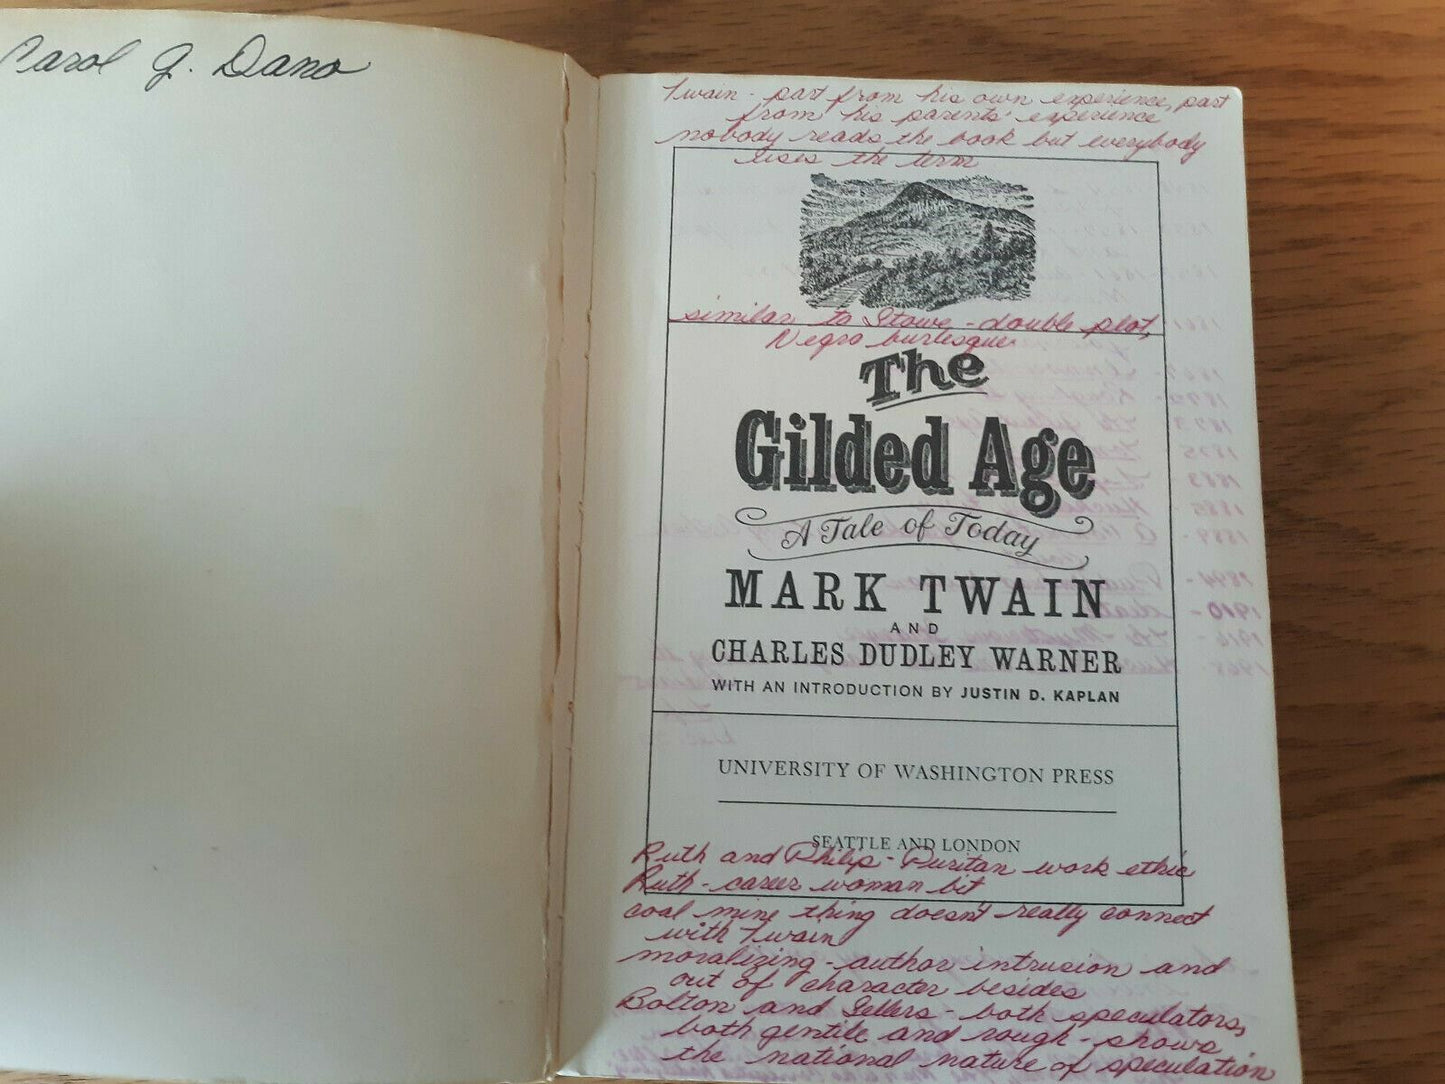 Carol J. Dano
Twain - part from his own experience, part
from his parents' experience
nobody reads the book but everybody
uses the term
similar to Stowe - double plot,
Negro burlesque
The
Gilded Age
A Tale of Today
MARK TWAIN
AND
CHARLES DUDLEY WARNER
WITH AN INTRODUCTION BY JUSTIN D. KAPLAN
UNIVERSITY OF WASHINGTON PRESS
SEATTLE AND LONDON
Ruth and Philip - Puritan work ethic
Ruth - career woman bit
coal mine thing doesn't really connect
with Twain
moralizing - author intrusion and
out of character besides
Bolton and Sellers - both speculators,
both gentile and rough - shows
the national nature of speculation